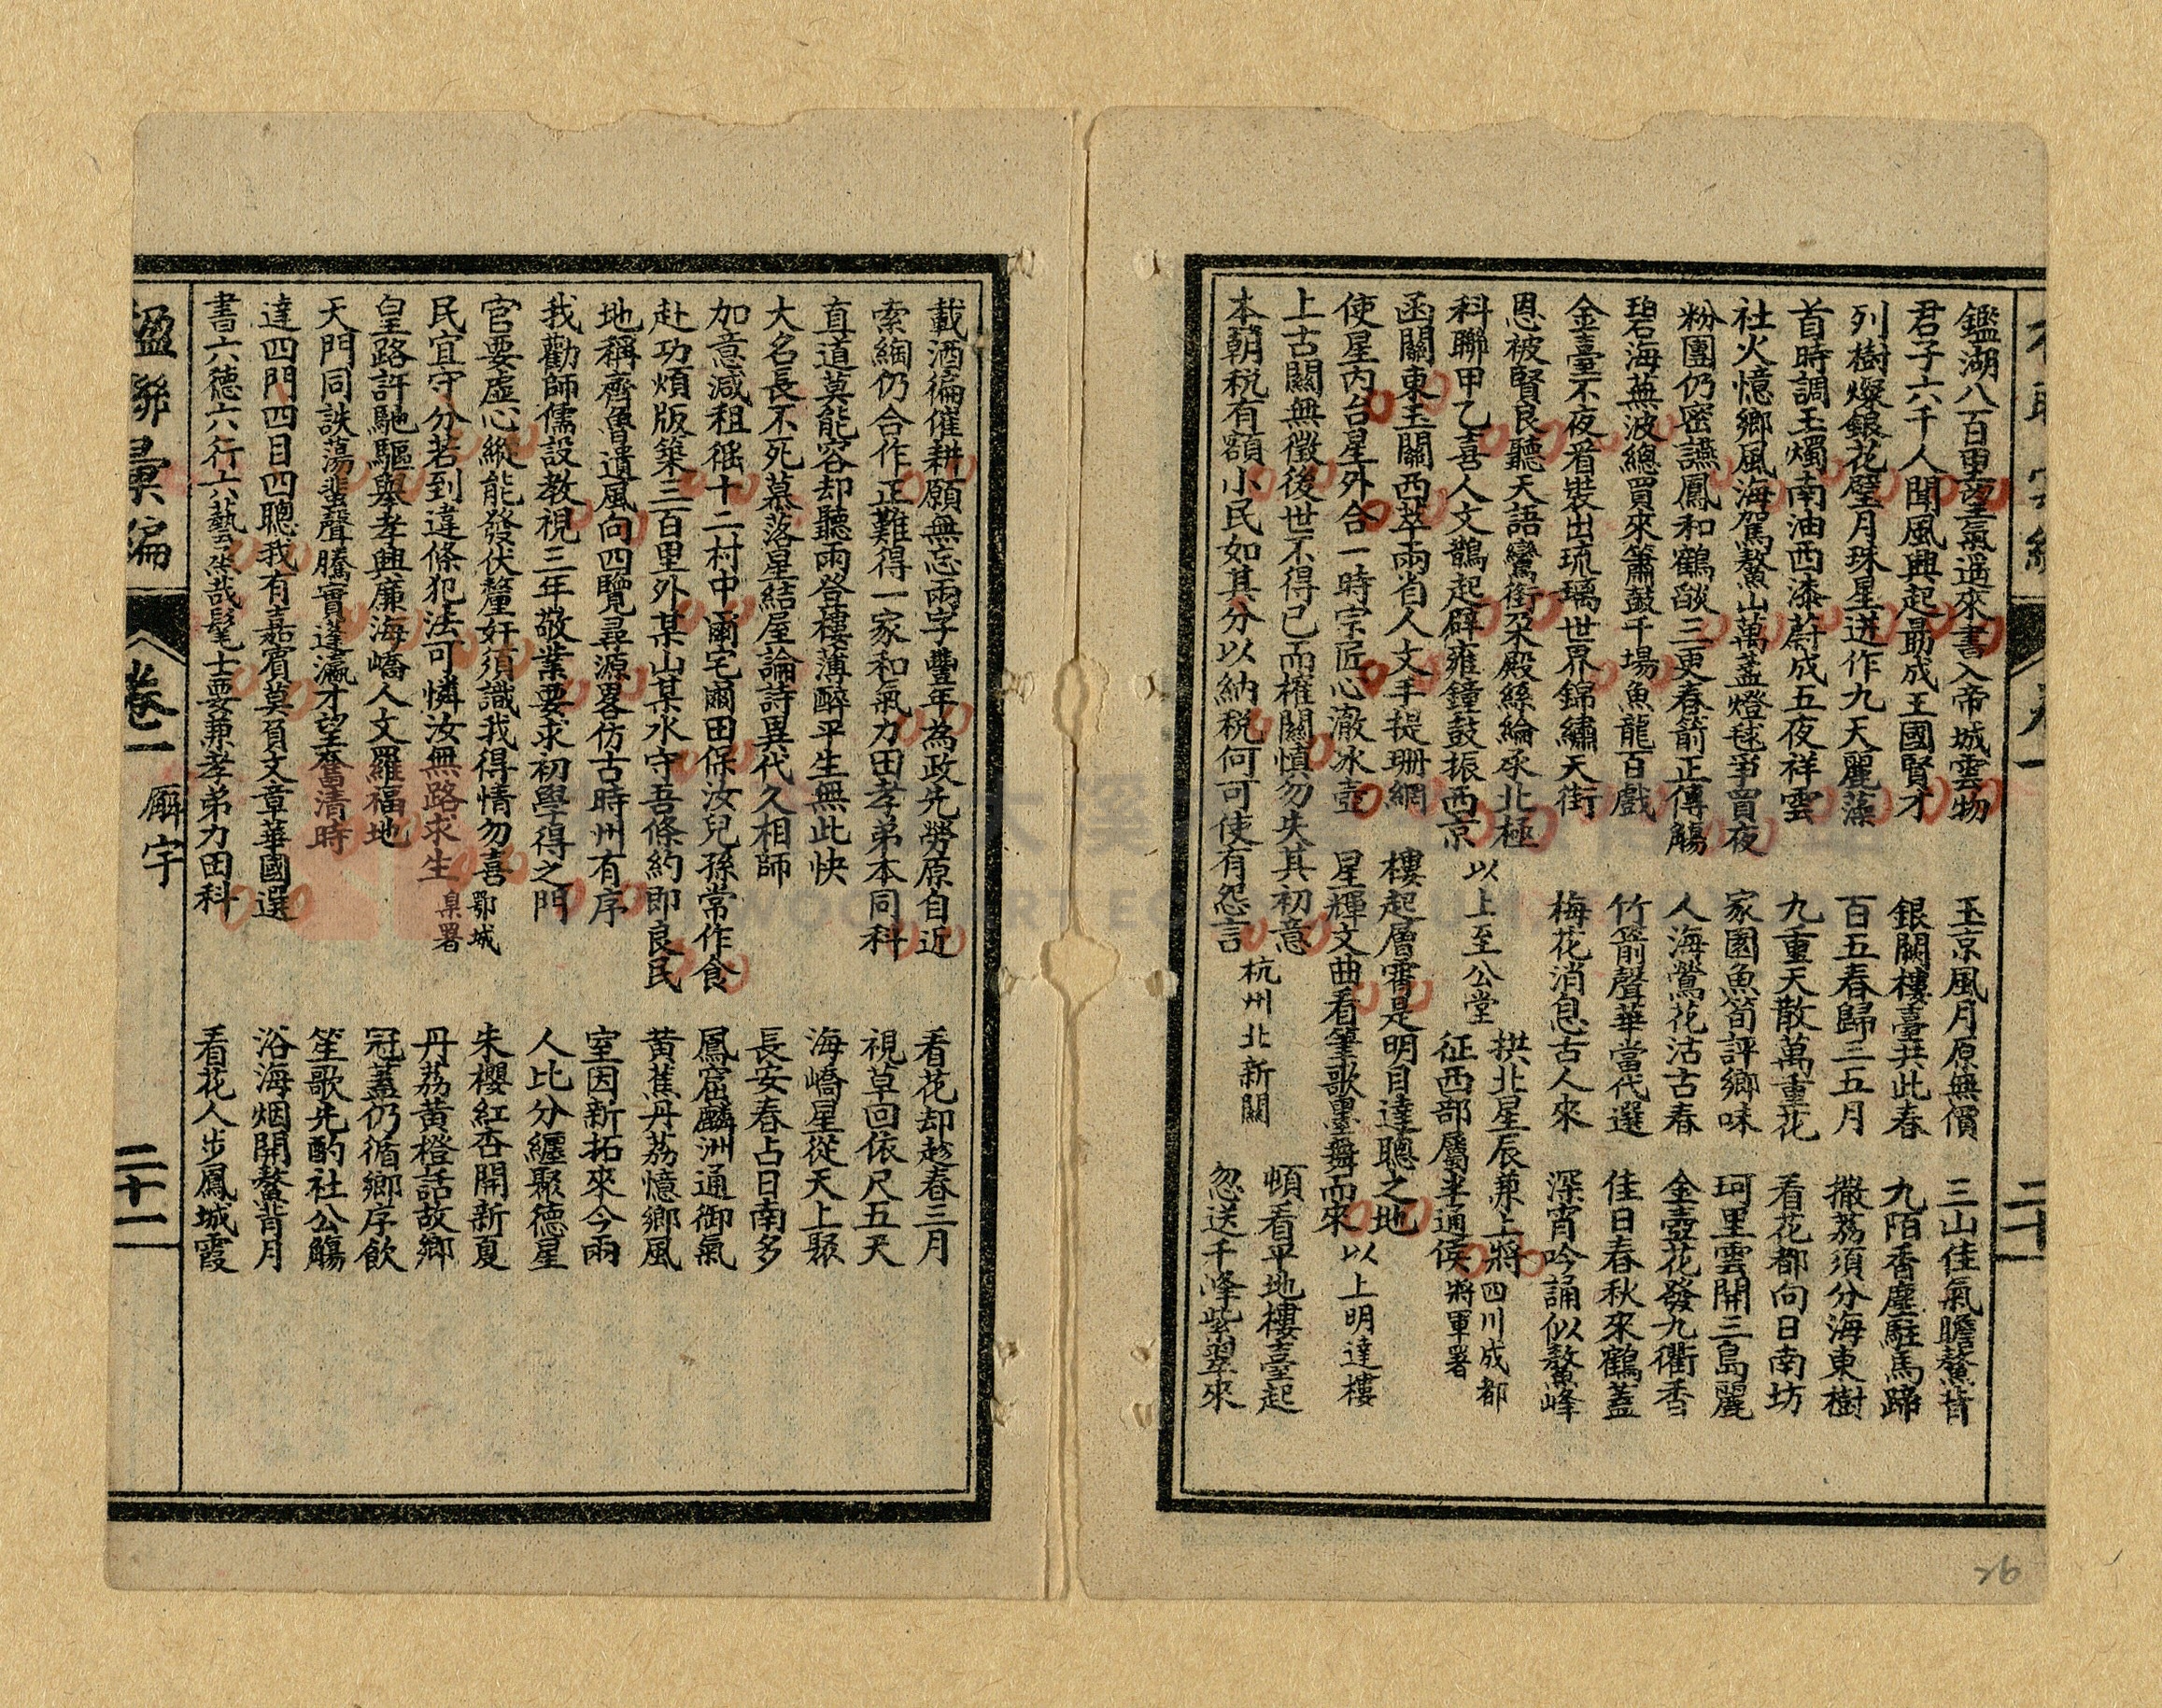 鑑湖八百里望氣遥來書入帝城雲物　玉京風月原無價　三山佳氣瞻鰲背
君子六千人聞風興起勗成王國賢才　銀闕樓臺共此春　九陌香塵駐馬蹄
列樹燦銀花璧月珠星迸作九天麗藻　百五春歸三五月　撒荔須分海東樹
首時調玉燭南油西漆蔚成五夜祥雲　九重天散萬重花　看花都向日南坊
社火憶鄉風海駕鰲山萬盞燈毬爭買夜　家園魚筍評鄉味　珂里雲開三島麗
粉團仍密讌鳳和鶴燄三更春箭正傳觴　人海鶯花沽古春　金壺花發九衢香
碧海蕪波總買來簫鼓千場魚龍百戲　竹箭聲華當代選　佳日春秋來鶴蓋
金臺不夜看裝出琉璃世界錦繡天街　梅花消息古人來　深宵吟誦似鰲峰
恩被賢良聽天語鸞銜朶殿絲綸承北極　拱北星辰兼上將　四川成都
科聯甲乙喜人文鵲起辟雍鐘鼓振西京　以上至公堂　征西部屬半通侯　將軍署
函關東玉關西萃兩省人文手提珊網　樓起層霄是明目達聰之地
使星內台星外合一時宗匠心澈冰壺　星輝文曲看筆歌墨舞而來　以上明達樓
上古關無徵後世不得已而榷關慎勿失其初意　頓看平地樓臺起
本朝稅有額小民如其分以納稅何可使有怨言　杭州北新關　忽送千峰紫翠來
卷一
二十一
載酒徧催耕願無忘兩字豐年為政先勞原自近　看花却趁春三月
索綯仍合作正難得一家和氣力田孝弟本同科　視草回依尺五天
直道莫能容却聽雨咎樓薄醉平生無此快　海嶠星從天上聚
大名長不死慕落星結屋論詩異代久相師　長安春占日南多
加意減租徭十二村中爾宅爾田保汝兒孫常作食　鳳窟麟洲通御氣
赴功煩版築三百里外某山某水守吾條約即良民　黃蕉丹荔憶鄉風
地稱齊魯遺風向四覽尋源畧仿古時州有序　室因新拓來今雨
我勸師儒設教視三年敬業要求初學得之門　人比分纏聚德星
官要虛心縱能發伏釐奸須識我得情勿喜　鄂城　朱櫻紅杏開新夏
民宜守分若到違條犯法可憐汝無路求生　臬署　丹荔黃橙話故鄉
皇路許馳驅舉孝興廉海嶠人文羅福地　冠蓋仍循鄉序飲
天門同詄蕩蜚聲騰實蓬瀛才望奮清時　笙歌先酌社公觴
達四門四目四聰我有嘉賓莫負文章華國選　浴海烟開鰲背月
書六德六行六藝烝哉髦士要兼孝弟力田科　看花人步鳳城霞
楹聯彙編
卷二
廨宇
二十一
26